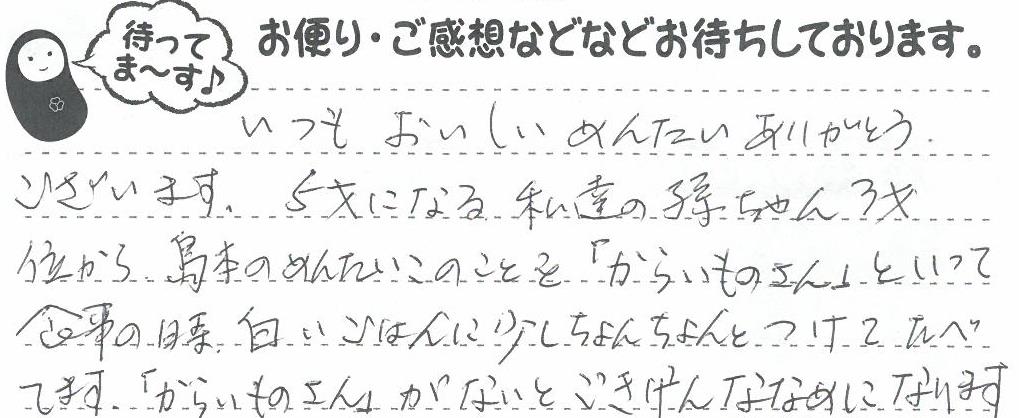 待って
ま～す♪
お便り・ご感想などなどお待ちしております。
いつも おいしい めんたい ありがとう
ございます。 5才になる 私達の孫ちゃん 3才
位から 島本のめんたいこのことを「からいものさん」といって
食事の時、白いごはんに少しちょんちょんと つけて たべ
てます。「からいものさん」がないと ごきげんななめに なります